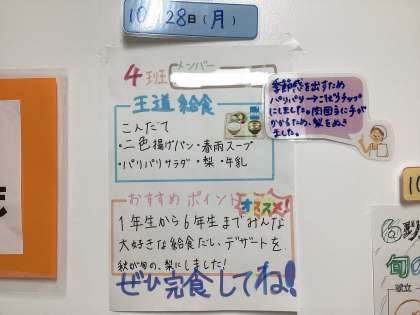 10月28日(月)
4班 メンバー
王道給食
こんだて
・二色揚げパン・春雨スープ
・パリパリサラダ・梨・牛乳
おすすめポイント
オススメ!
1年生から6年生までみんな
大好きな給食だし、デザートを
秋が旬の、梨にしました!
ぜひ完食してね!
季節感を出すため
パリパリ→ごぼうチップ
にしました。肉団子に手が
かかるため、梨をぬき
ました。
旬の